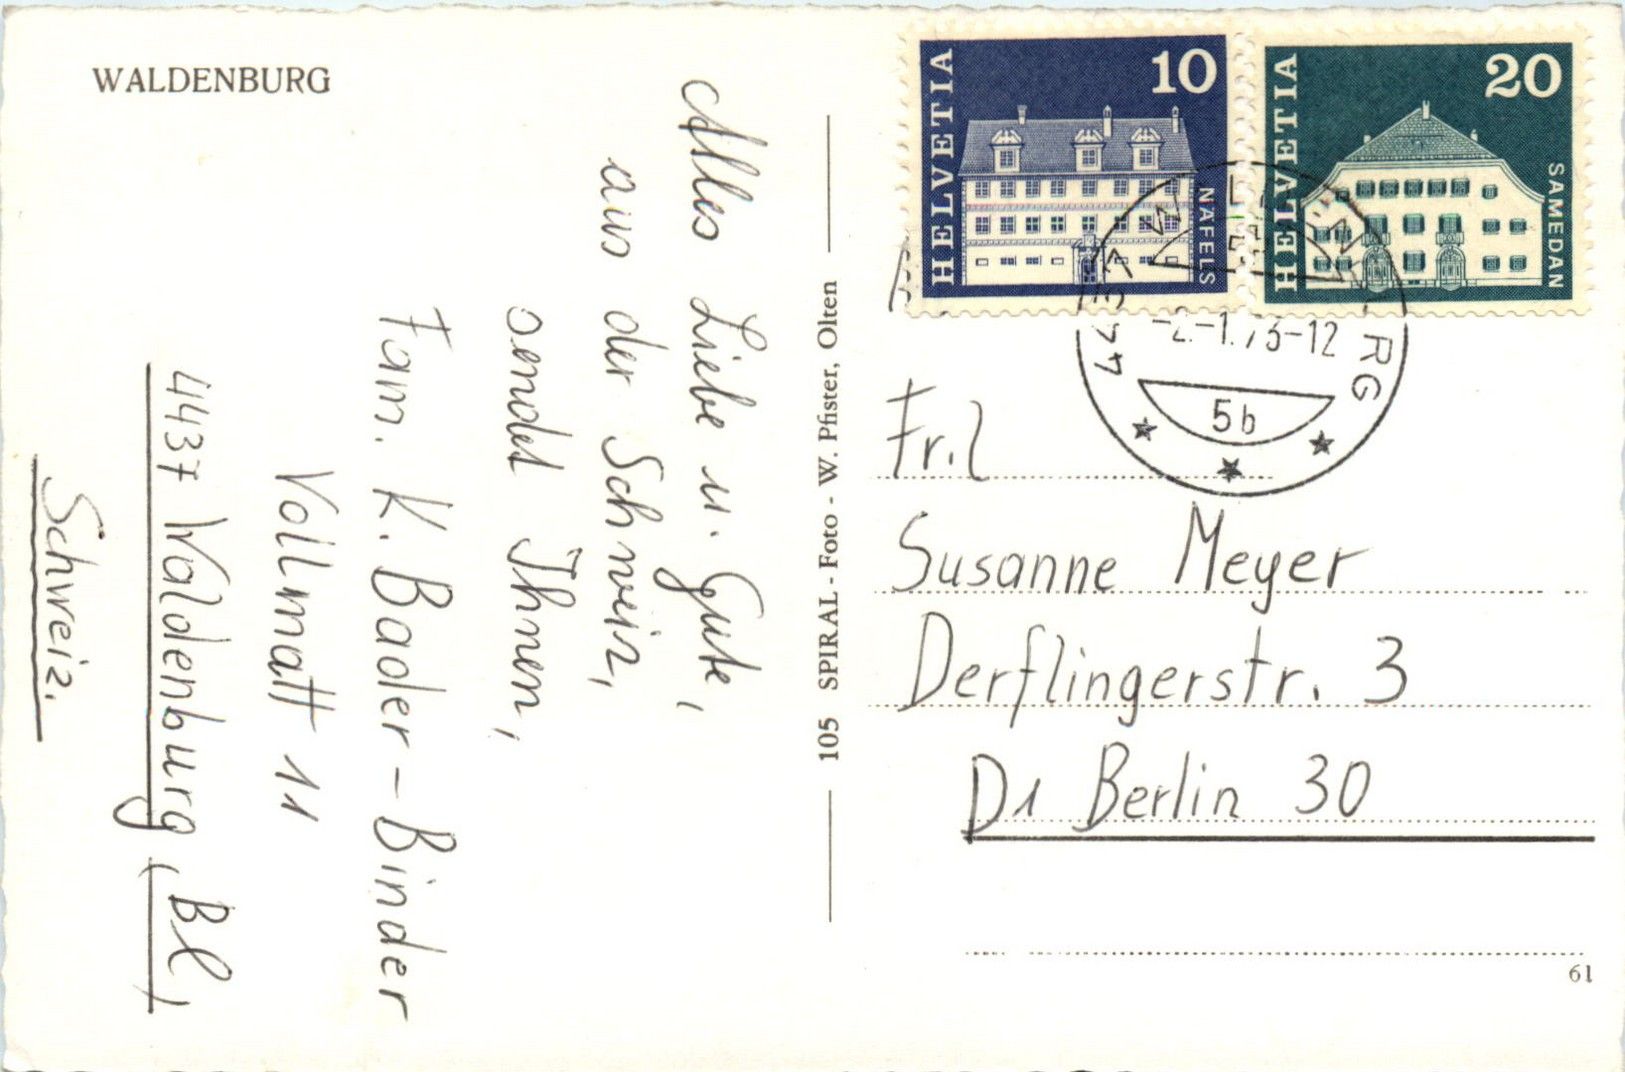 WALDENBURG
Alles Liebe u. Gute,
aus der Schweiz,
sendet Ihnen,
Fam. K. Bader-Binder
Vollmatt 11
4437 Waldenburg (BL)
Schweiz.
105 SPIRAL - Foto - W. Pfister, Olten
HELVETIA
10
NÄFELS
HELVETIA
20
SAMEDAN
-2.-1.73-12
5b
Frl
Susanne Meyer
Derflingerstr. 3
D1 Berlin 30
61